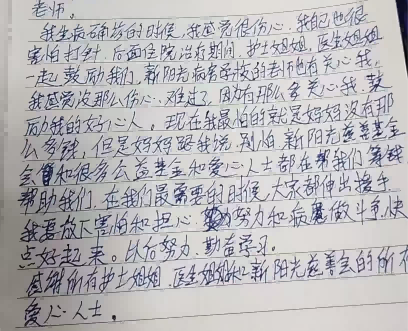 老师。
我生病确诊的时候,我感觉很伤心,我自己也很
害怕打针,后面住院治疗期间,护士姐姐,医生姐姐
一起鼓励我们,新阳光病房学校的老师也有关心我,
我感觉没那么伤心、难过了,因为有那么多关心我、鼓
励我的好心人。现在我最怕的就是妈妈没有那
么多钱,但是妈妈跟我说,别怕,新阳光慈善基金
会和很多公益基金和爱心人士都在帮我们筹钱
帮助我们,在我们最需要的时候,大家都伸出援手
我要放下害怕和担心,努力和病魔做斗争,快
点好起来。以后努力、勤奋学习。
感谢所有护士姐姐、医生姐姐和新阳光慈善会的所有
爱心人士。